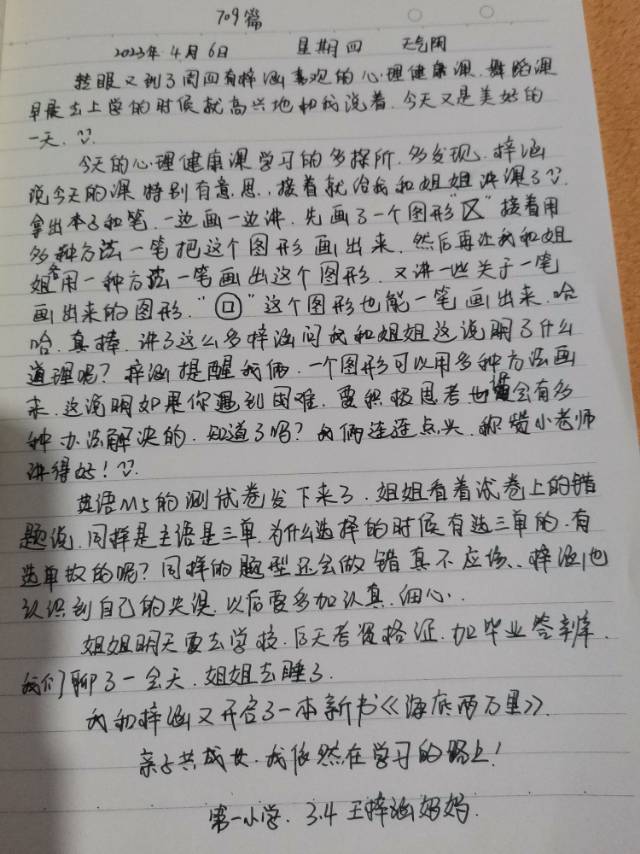 709篇
2023年4月6日 星期四 天气阴
转眼又到了周四有梓涵喜欢的心理健康课.舞蹈课
早晨去上学的时候就高兴地和我说着.今天又是美好的
一天.
今天的心理健康课学习的多探所.多发现.梓涵
说今天的课特别有意思.接着就给我和姐姐讲课了
拿出本子和笔.一边画一边讲.先画了一个图形"区"接着用
多种方法一笔把这个图形画出来.然后再让我和姐
姐各用一种方法一笔画出这个图形.又讲一些关于一笔
画出来的图形."回"这个图形也能一笔画出来.哈
哈.真棒.讲了这么多梓涵问我和姐姐这说明了什么
道理呢?梓涵提醒我俩.一个图形可以用多种方法画
来.这说明如果你遇到困难.要积极思考也会有多
种办法解决的.知道了吗?我俩连连点头.称赞小老师
讲得好!
英语M5的测试卷发下来了.姐姐看着试卷上的错
题说.同样是主语是三单.为什么选择的时候有选三单的.有
选单数的呢?同样的题型还会做错真不应该.梓涵也
认识到自己的失误.以后要多加认真.细心.
姐姐明天要去学校.后天考资格证.加毕业答辩.
我们聊了一会天.姐姐去睡了.
我和梓涵又开启了一本新书《海底两万里》.
亲子共成长.我依然在学习的路上!
第一小学.3.4王梓涵妈妈.